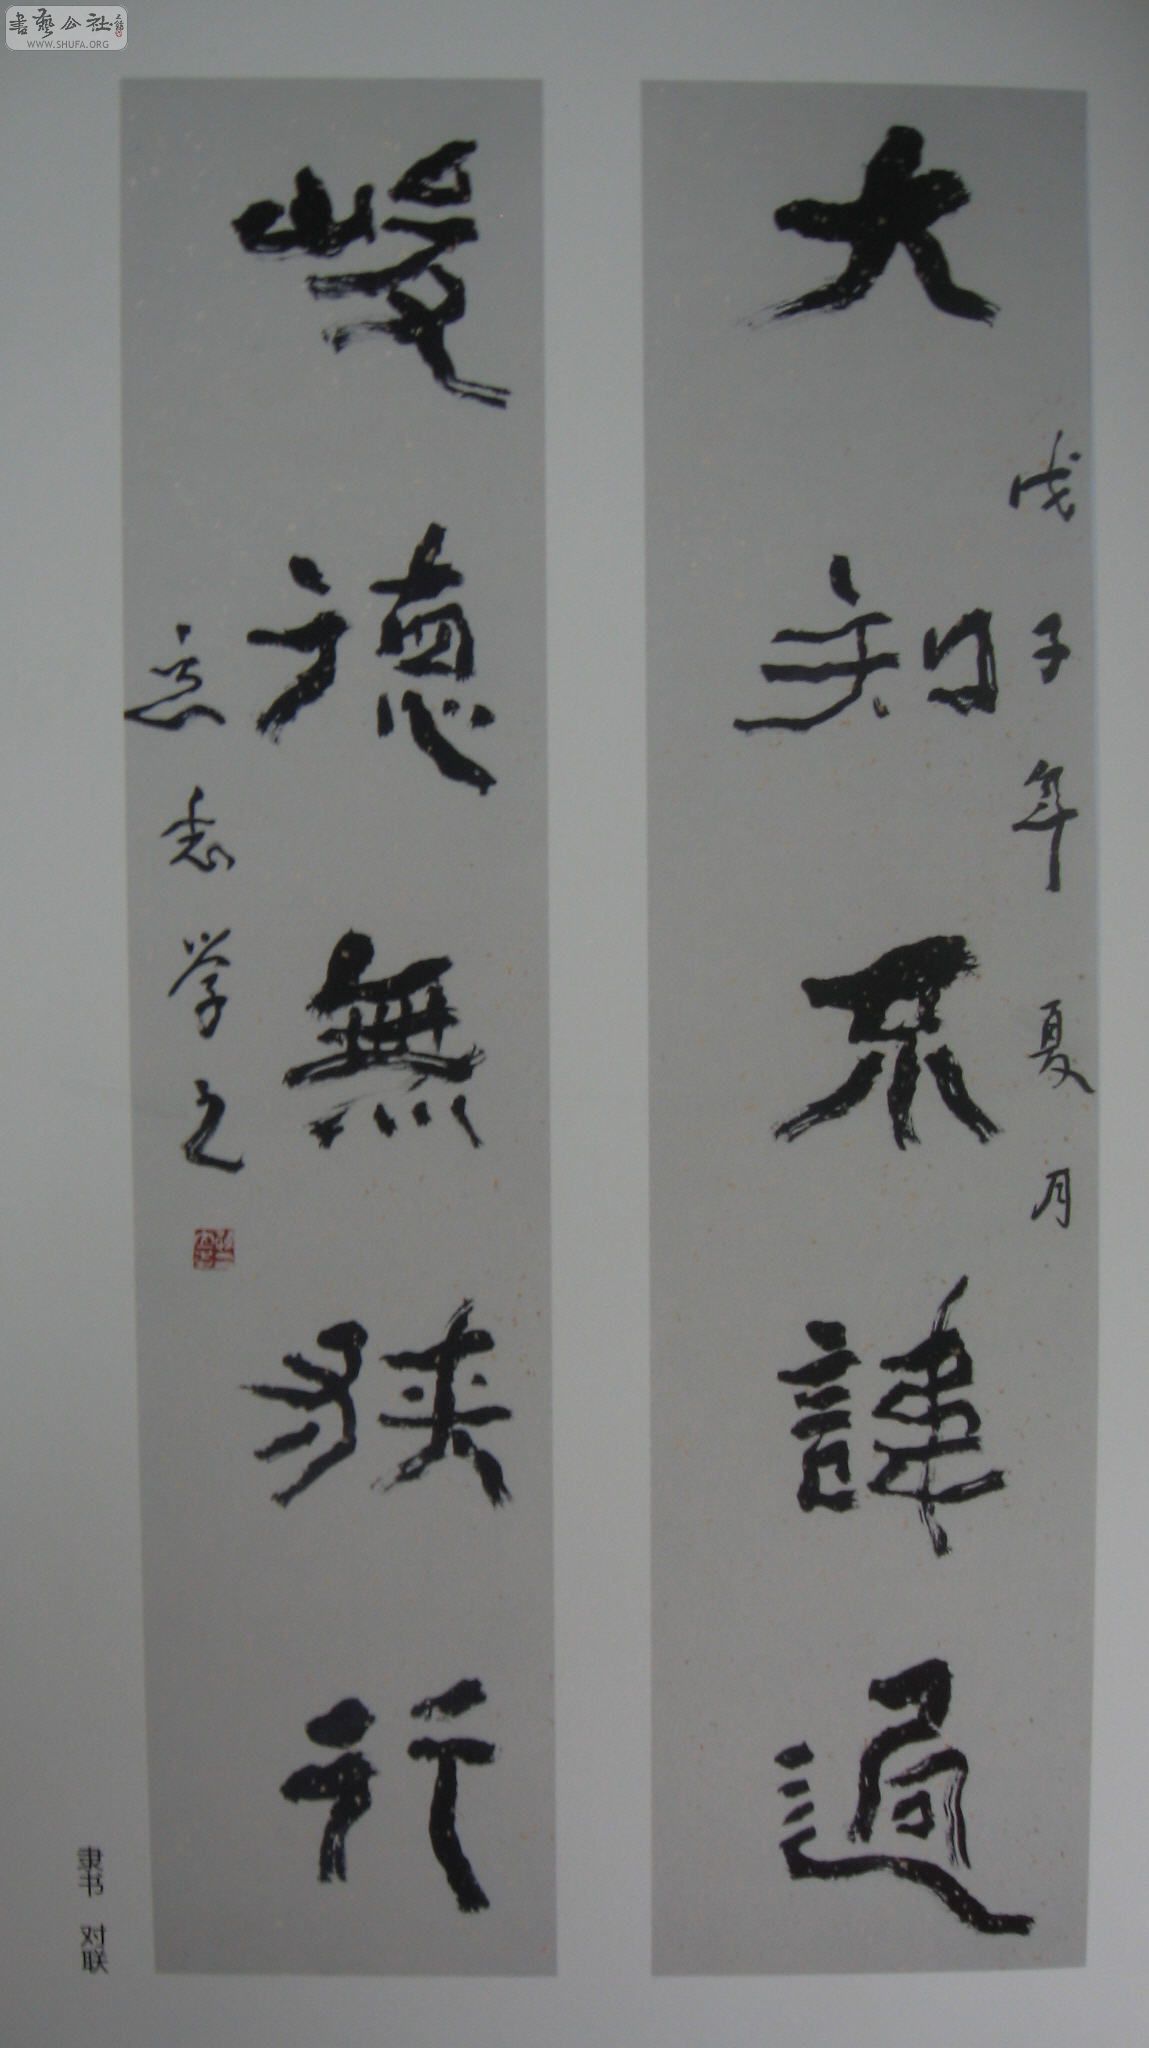 書藝公社
WWW.SHUFA.ORG
大知不諱過
戊子年 夏月
峻德無狹行
学之
隶书 对联